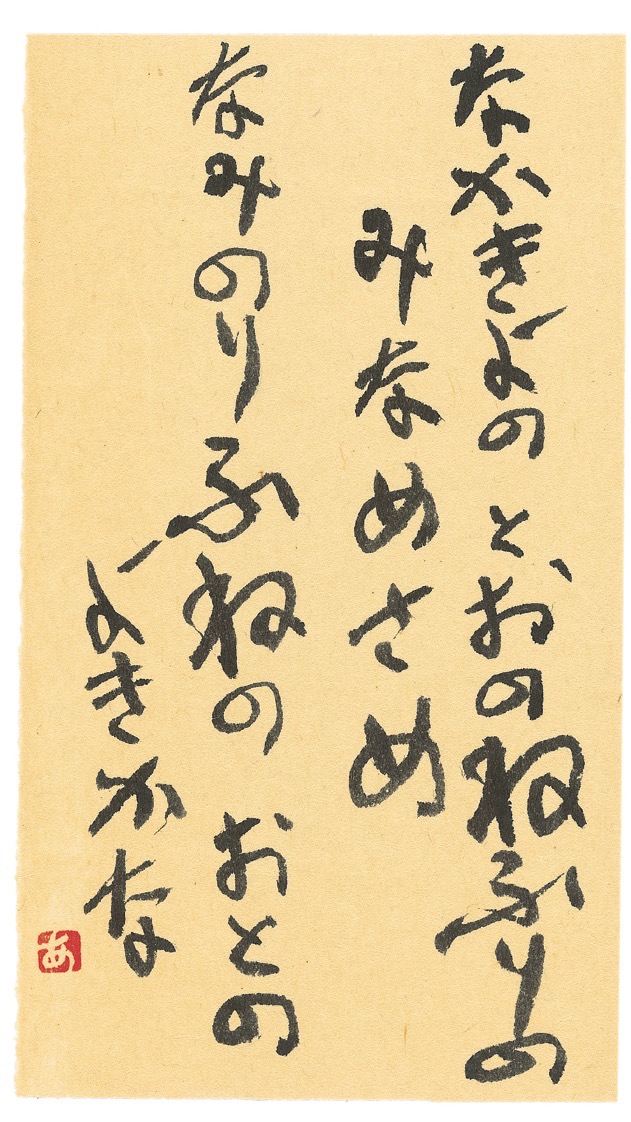 なかきよの とおのねふりの
みなめさめ
なみのりふねの おとの
よきかな
あ